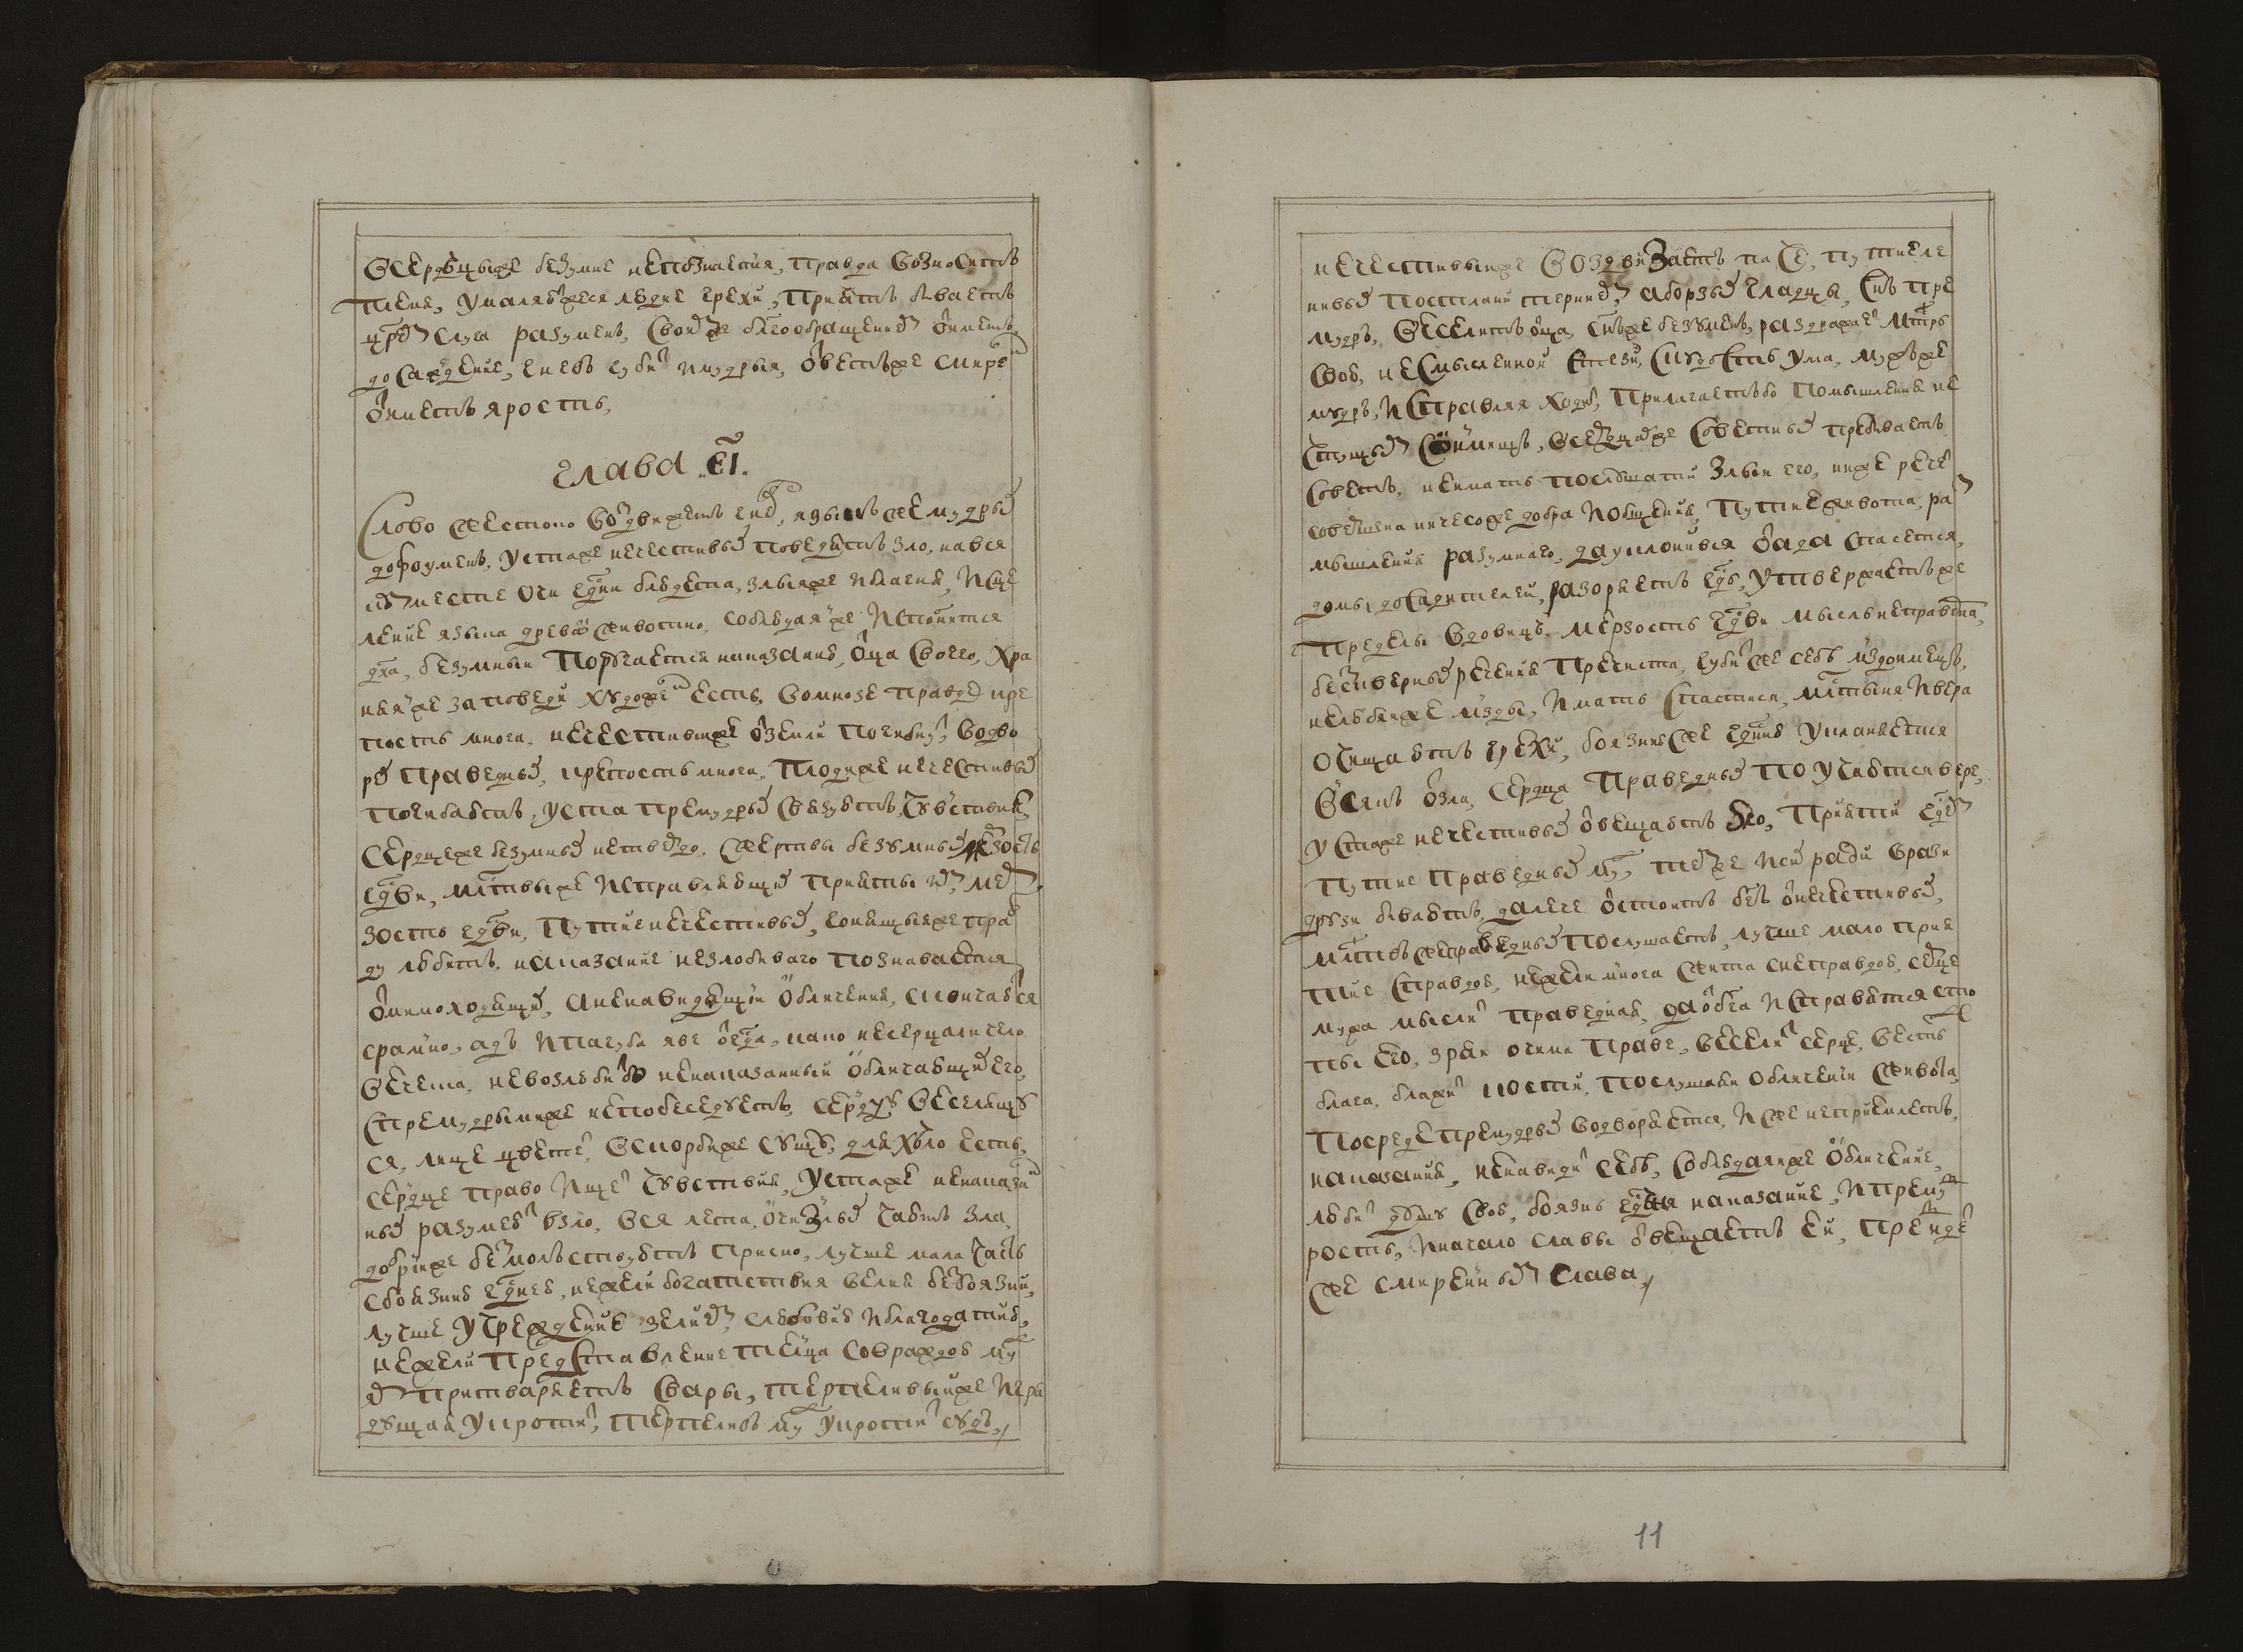 Всердцыже безумне непознается, правда возносит
племя, умаляю́тже ся людие греси́, Приятъ бываетъ
цр҃ю слуга разуменъ, своим же бл҃гообращением ѿиметъ
досажде́ние, гневъ губи́т мудрыя, ѿветъже смирен
ѿиметъ яростъ,
глава є҃і.
Слово жестоко воздвижетъ гнев, языкъ же мудрых
доброуменъ, устаже нечестивых поведятъ зло, нався
комъ месте очи гд҃ни блюдета, злыяже иблагия, Исце
ление языка древо животно, соблюдаяй же исполнится
дх҃а, безумныи поругается наказанию, оц҃а своего, хра
няй же заповеди художен есть, вомнозе правде кре
пость многа, нечестивыиже ѿземли погибнут, водво
рех праведных, крепость многа, плодиже нечестивых
погибаютъ, уста премудрых связуютъ, чувствия,
сердцеже безумных нетвердо, жертвы безумных мерзость
гд҃ви, мл҃твыже исправляющих приятны им, мер
зость гд҃ви, путие нечестивых, гонящыяже прав
ду любитъ, наказание незлобиваго познавается
ѿмимоходящих, аненавидящии обличения, скончаются
срамно, адъ ипагуба яве ѿгд҃а, како несердцаличело
вечема, невозлюбитъ ненаказанныи обличающих его,
спремудрымиже непобеседуетъ, се́рдцу веселящу
ся, лице цветет, вскорбиже сущу, дряхло есть,
се́рдце право ищет чувствия, устаже ненаказан
ных разумеют взло, вся лета, очи злых чают зла,
добрииже безмолъствуютъ присно, лучше мала часть
сбоязнию гд҃нею, нежели богатествия велия безбоязни,
лучше учреждение зелием слюбовию иблагодатию,
нежели представление телца совраждою му҃ж
ярый притваряетъ свары, терпеливыиже игря
дущая укротит, терпеливъ му҃ж укротит судъ,
нечестивыиже воздвизаетъ паче, путиеле
нивых постлани тернием, аборзых гладцы, сн҃ъ пре
мудръ, веселитъ оц҃а, сн҃ъже безуменъ, раздражает мт҃рь
свою, несмысленном стези, скудость ума, мужъже
мудръ, исправляя ходит, прилагаетъбо помышления не
чтущым сонмища, всердцахже советных пребываетъ
советъ, неимать послушати злыи его, ниже речет
совершена ничесоже добра иобщения, путие живота раз
мышления разумнаго, дауклонився ѿада спасется,
домы досадителей, разоряетъ гд҃ь, утвержаетъже
пределы вдовицъ, мерзость гд҃ви мысль неправедна,
бесквернных речение пречиста, губит же себъ мздоимецъ,
нелюбяиже мзды, имать спастися, мл҃тынями ивера
очищаютъ грехи, боязнию же гд҃нею укланяется
всякъ ѿзла, сердца праведных поучаются вере,
устаже нечестивых ѿвещаютъ зло, приятни гд҃ем
путие праведных му҃ж, темже исих ради врази
друзи бываютъ, далече ѿстоитъ бг҃ъ ѿнечестивых,
мл҃твъ жеправедных послушаетъ, лучше мало прия
тие справдою, нежели многа жита снеправдою, сердце
мужа мыслит праведная, даѿбг҃а исправятся стопы
ты его, зряи очима праве, веселит сердце, весть
блага, блажит кости, послушаяи обличения живота,
посреде премудрых водворяется, ижене приемлетъ,
наказания, ненавидит себъ, соблюдаяиже обличение,
любит душу свою, боязнь гд҃ня наказание, ипремуд
ростъ, иначало славы ѿвещаетъ ей, предидет
же смиренным слава,
11